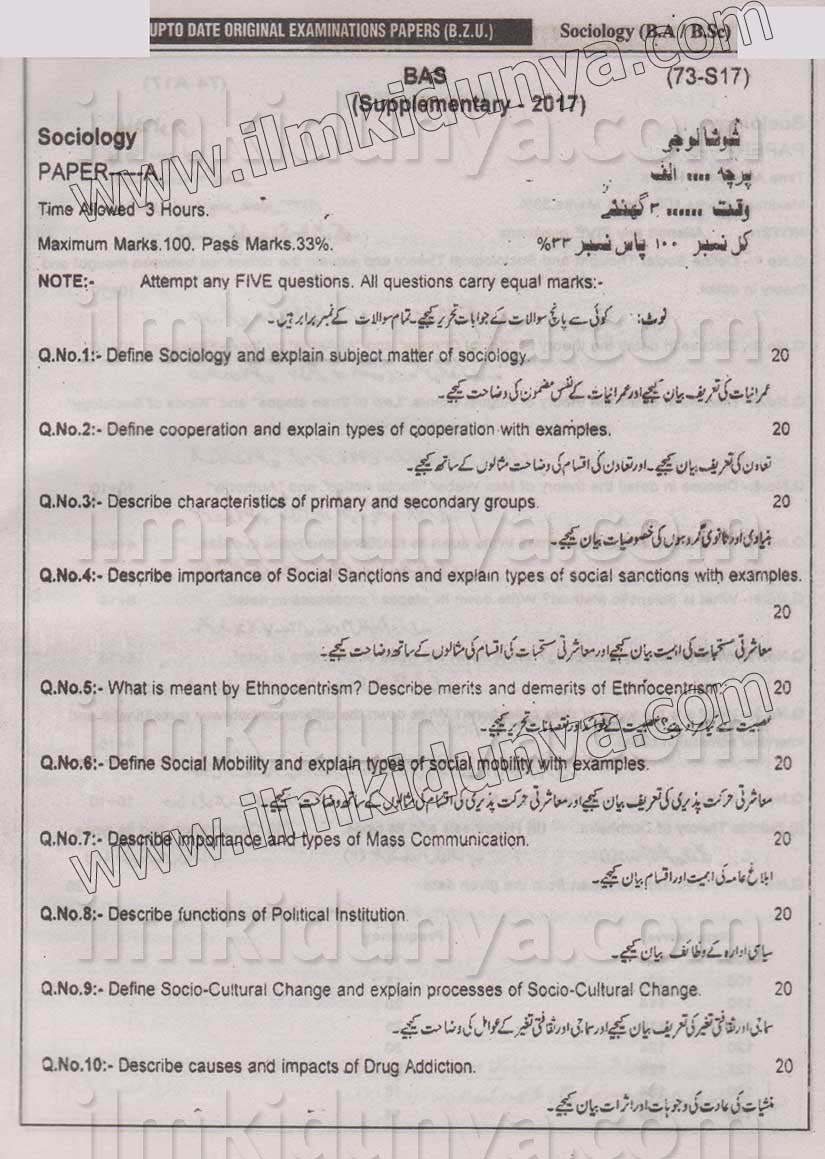 UPTO DATE ORIGINAL EXAMINATIONS PAPERS (B.Z.U.) Sociology (B.A / B.Sc)
BAS (73-S17)
(Supplementary - 2017)
Sociology سوشالوجی
PAPER-----A. پرچہ .... الف
Time Allowed 3 Hours. وقت ...... ۳ گھنٹے
Maximum Marks.100. Pass Marks.33%. کل نمبر ۱۰۰ پاس نمبر ۳۳%
NOTE:- Attempt any FIVE questions. All questions carry equal marks:-
نوٹ: کوئی سے پانچ سوالات کے جوابات تحریر کیجیے۔ تمام سوالات کے نمبر برابر ہیں۔
Q.No.1:- Define Sociology and explain subject matter of sociology. 20
عمرانیات کی تعریف بیان کیجیے اور عمرانیات کے نفس مضمون کی وضاحت کیجیے۔
Q.No.2:- Define cooperation and explain types of cooperation with examples. 20
تعاون کی تعریف بیان کیجیے۔ اور تعاون کی اقسام کی وضاحت مثالوں کے ساتھ کیجیے۔
Q.No.3:- Describe characteristics of primary and secondary groups. 20
بنیادی اور ثانوی گروہوں کی خصوصیات بیان کیجیے۔
Q.No.4:- Describe importance of Social Sanctions and explain types of social sanctions with examples.
20
معاشرتی مستحبات کی اہمیت بیان کیجیے اور معاشرتی مستحبات کی اقسام کی مثالوں کے ساتھ وضاحت کیجیے۔
Q.No.5:- What is meant by Ethnocentrism? Describe merits and demerits of Ethnocentrism. 20
عصبیت سے کیا مراد ہے؟ عصبیت کے فوائد اور نقصانات تحریر کیجیے۔
Q.No.6:- Define Social Mobility and explain types of social mobility with examples. 20
معاشرتی حرکت پذیری کی تعریف بیان کیجیے اور معاشرتی حرکت پذیری کی اقسام کی مثالوں کے ساتھ وضاحت کیجیے۔
Q.No.7:- Describe importance and types of Mass Communication. 20
ابلاغ عامہ کی اہمیت اور اقسام بیان کیجیے۔
Q.No.8:- Describe functions of Political Institution. 20
سیاسی ادارہ کے وظائف بیان کیجیے۔
Q.No.9:- Define Socio-Cultural Change and explain processes of Socio-Cultural Change. 20
سماجی اور ثقافتی تغیر کی تعریف بیان کیجیے اور سماجی اور ثقافتی تغیر کے عوامل کی وضاحت کیجیے۔
Q.No.10:- Describe causes and impacts of Drug Addiction. 20
منشیات کی عادت کی وجوہات اور اثرات بیان کیجیے۔
www.ilmkidunya.com
www.ilmkidunya.com
ilmkidunya.com
ilmkidunya.com
ilmkidunya.com
ilmkidunya.com
ilmkidunya.com
ilmkidunya.com